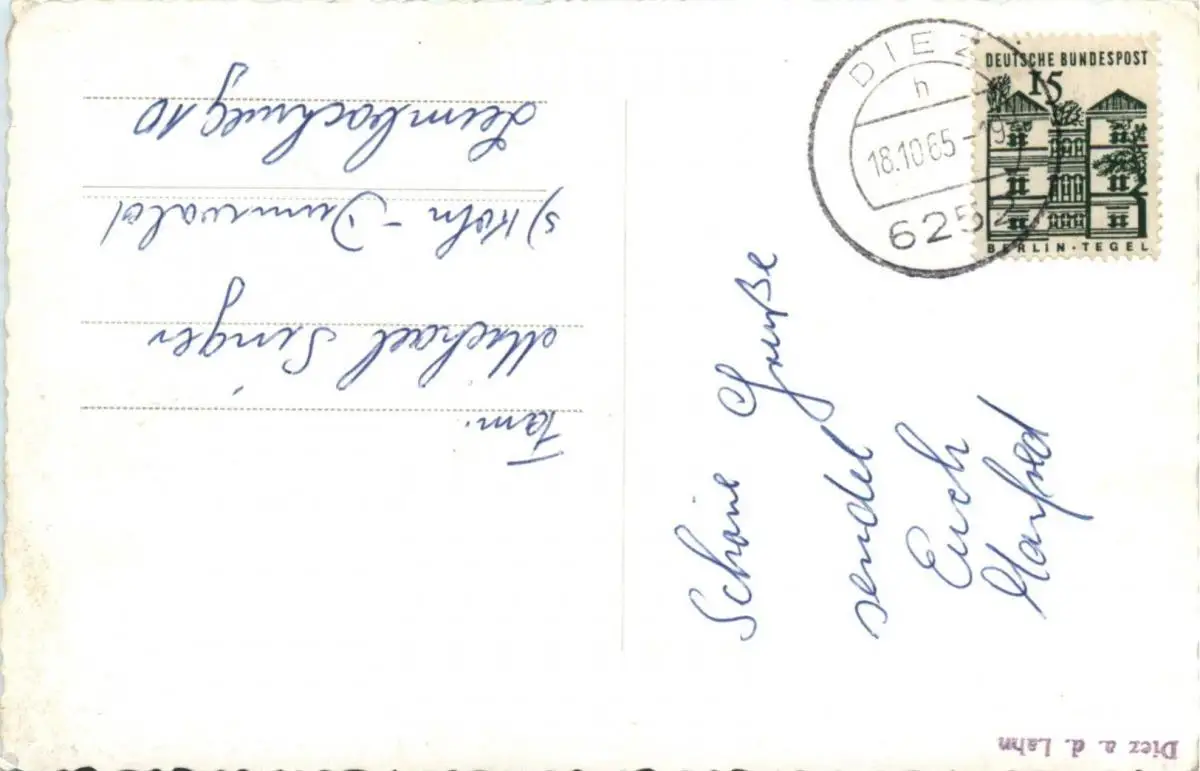 DEUTSCHE BUNDESPOST
15
BERLIN-TEGEL
DIEZ
h
18.10.65-19
6252
Schöne Grüße
sendet
Euch
Manfred
Fam.
Michael Singer
5) Köln - Dünnwald
Leimbachweg 10
Diez a. d. Lahn